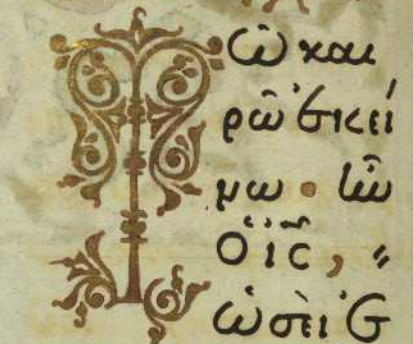 Τῶ και
ρῶ ἐκεί
νω · ἦν
ὁ ἰ͞ς, 〃
ὡσεὶ ἐ